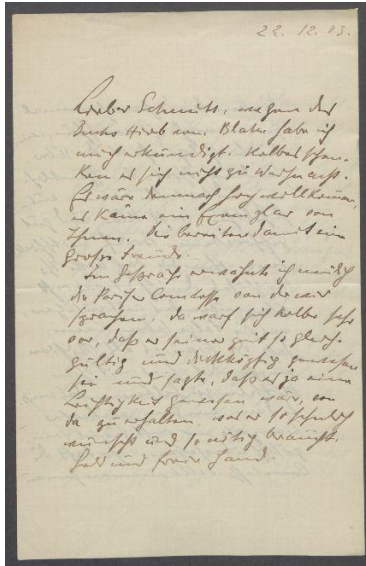 22. 12. 03.
Lieber Schmitt, wegen des
Buchs Hiob von Blake habe ich
mich erkundigt. Kolbe schen-
ken es sich nicht zu Weihnacht.
Es wäre demnach hochwillkommen,
es käme ein Exemplar von
Ihnen. Sie bereiten damit eine
große Freude.
Im Gespräche erwähnte ich neulich
die Pariser Comtesse von der wir
sprachen, da warf sich Kolbe sehr
vor, daß er seiner Zeit so gleich-
gültig und dickköpfig gewesen
sei und sagte, daß es ja eine
Leichtigkeit gewesen wäre, von
da zu erhalten was er so sehnlich
wünscht und so nötig braucht.
Geld und freie Hand.